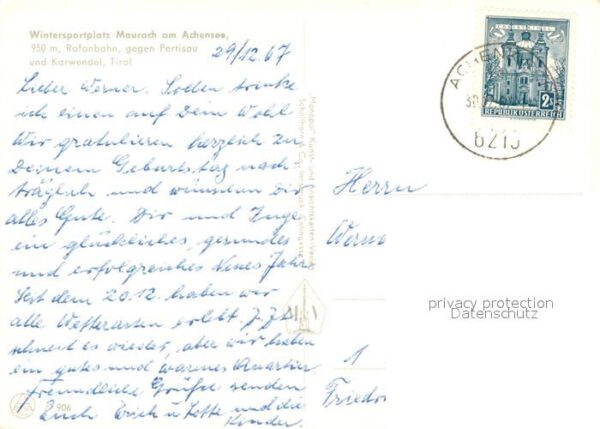 Wintersportplatz Maurach am Achensee,
950 m, Rofanbahn, gegen Pertisau
und Karwendel, Tirol
29/12.67
Lieber Werner. Soeben trinke
ich einen auf Dein Wohl
Wir gratulieren herzlich zu
Deinem Geburtstag nach-
träglich und wünschen Dir
alles Gute. Dir und Inge
ein glückliches, gesundes
und erfolgreiches Neues Jahr
Seit dem 20.12. haben wir
alle Wetterarten erlebt. Z. Zt
schneit es wieder, aber wir haben
ein gutes und warmes Quartier.
Freundliche Grüße senden
Euch Erich u Lotte und die
Kinder.
906
CHRISTKINDL
2S
REPUBLIK ÖSTERREICH
6215
Herrn
Werne
1
Friedo
privacy protection
Datenschutz